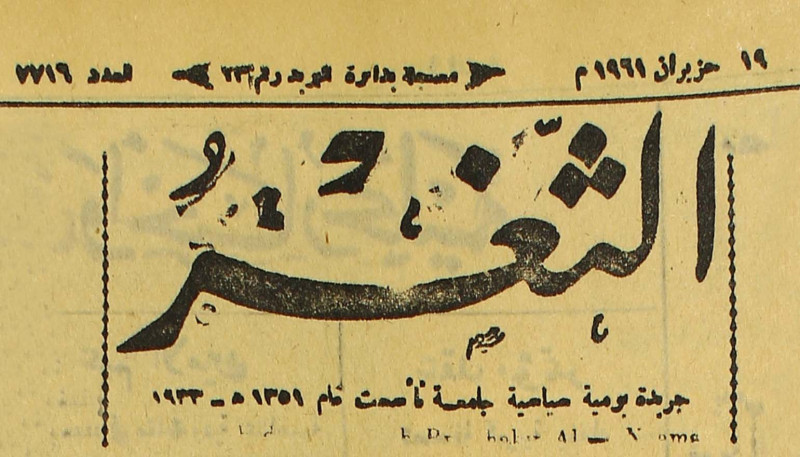 ١٩ حزيران ١٩٦١ م مسجلة بدائرة البريد رقم ٢٣ العدد ٧٧١٩
الثغر
جريدة يومية سياسية جامعة تأسست عام ١٣٥١ ه - ١٩٣٣